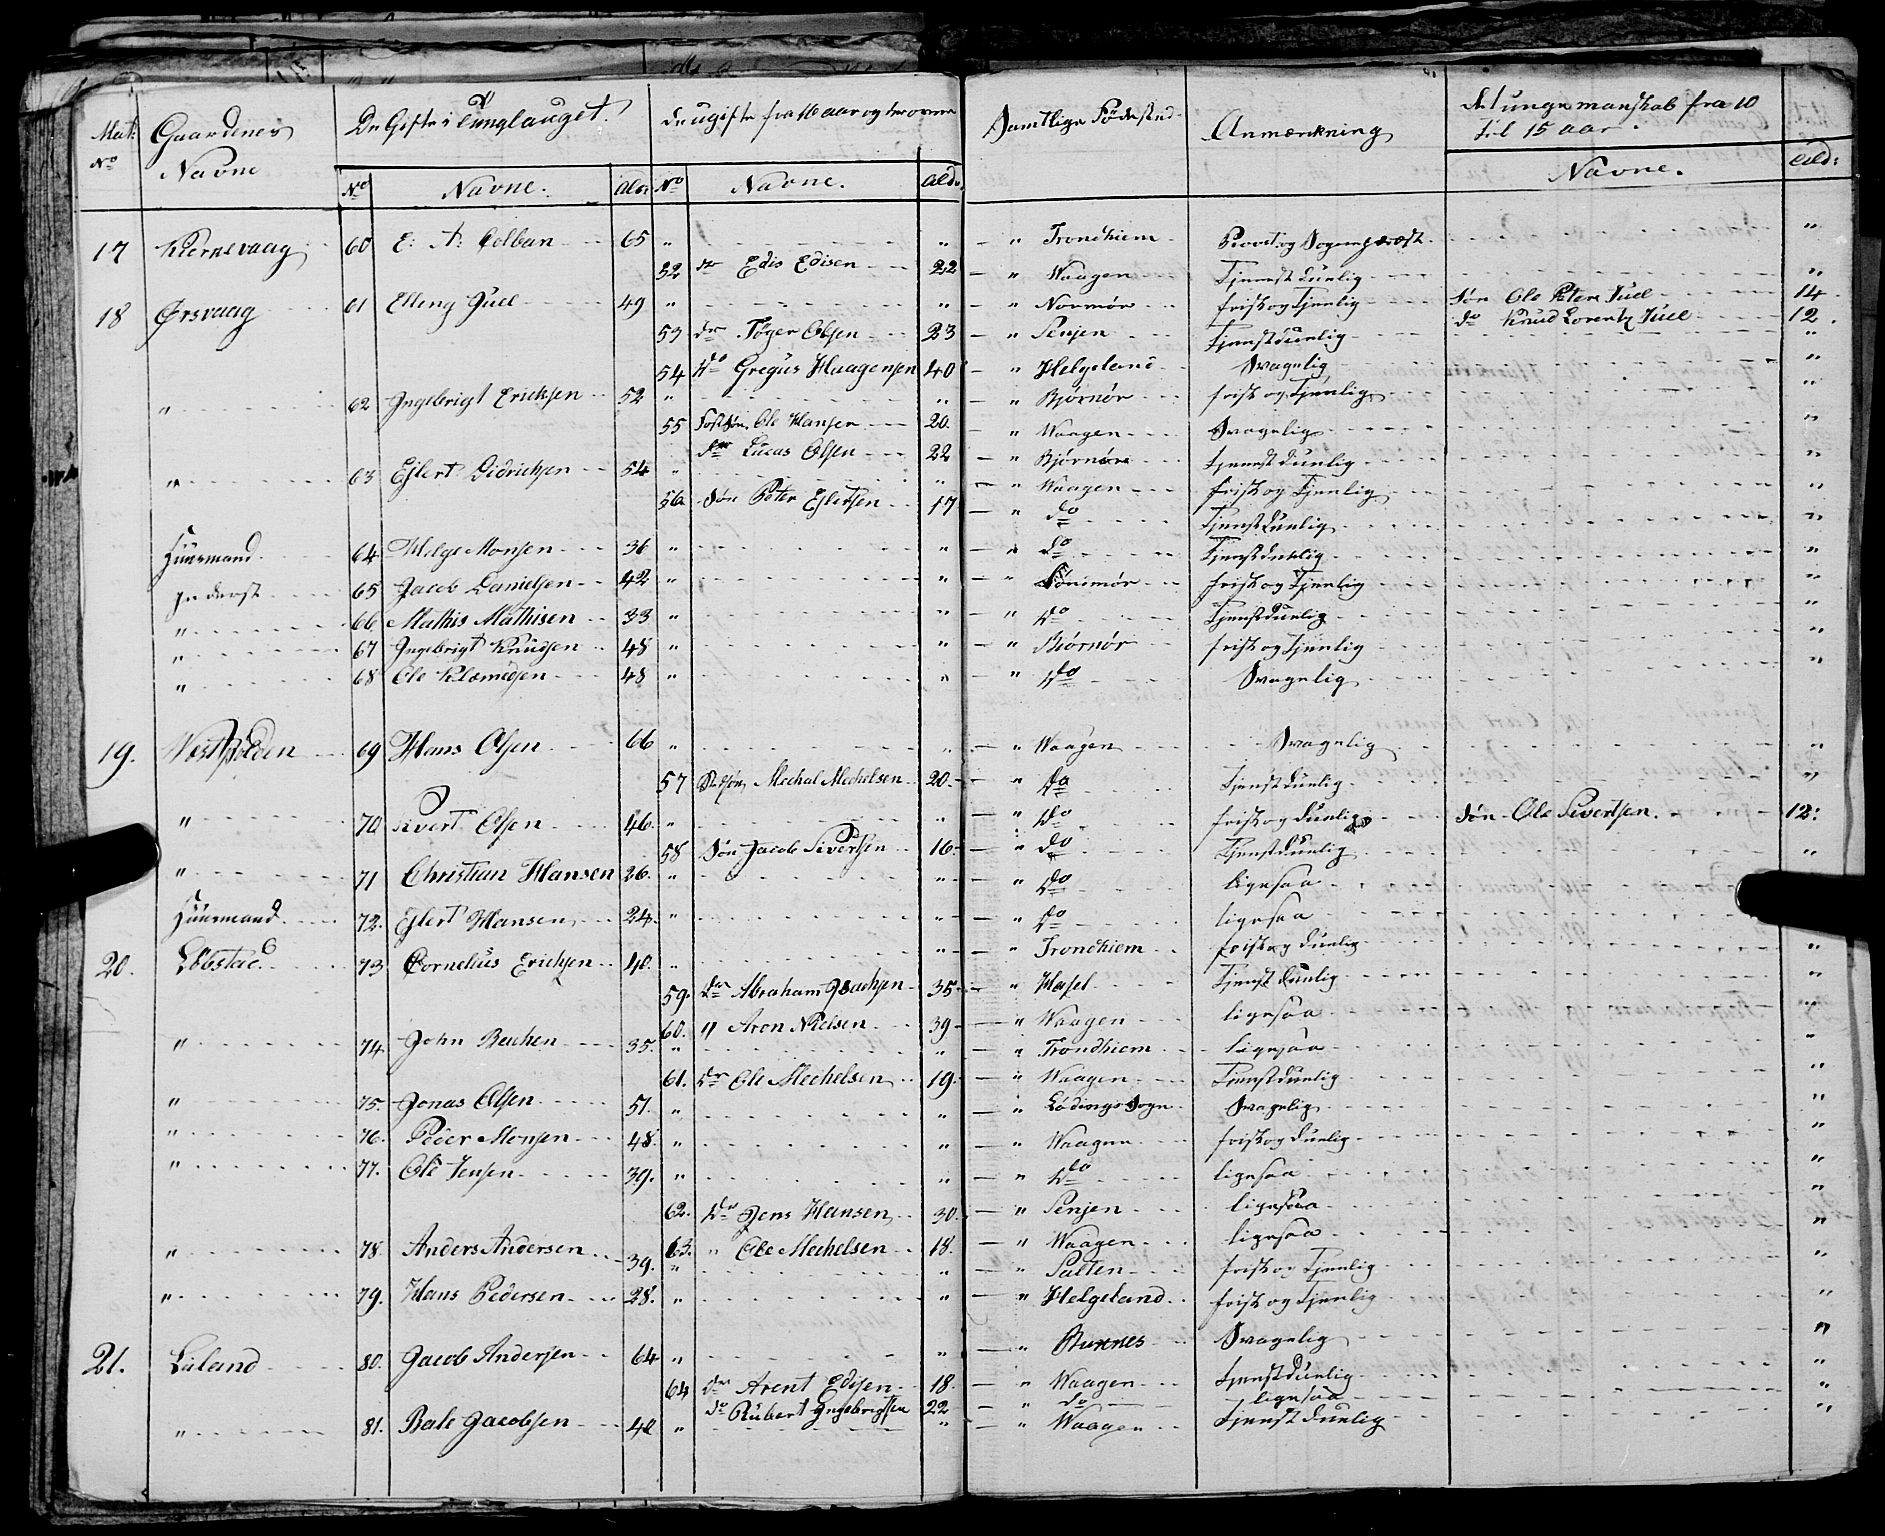 Mat: No | Gaardenes Navne | De Gifte i Tinglauget. No | Navne. | Ald: | de ugifte fra 16 aar og derover No | Navne. | Ald: | Samtlige Fødested | Anmærkning | det unge manskab fra 10 til 15 aar. Navne. | Ald:
17 | Kiernevaag | 60 | E: A: Colban | 65 | " | " | " Trondhiem | Provst og Sognepræst | "
52 | dr Edis Edisen | 22 | " Waagen | Tjenestdunlig | "
18 | Ørsvaag | 61 | Elling Juel | 49 | " | " | " Normør | frisk og Tjenlig | Søn Ole Peter Juel | 14
53 | dr Tøger Olsen | 23 | " Senjen | Tjenstdunlig | do Knud Lorentz Juel | 12
54 | do Gregus Haagensen | 40 | " Helgeland | Svagelig | "
" | 62 | Ingebrigt Ericksen | 52 | " | " | " Bjørnør | frisk og Tjenlig | "
55 | Fostsøn Ole Hansen | 20 | " Waagen | Svagelig | "
dr Lucas Olsen | 22 | " Bjørnør | Tjenestdunlig | "
" | 63 | Ejlert Didrichsen | 54 | " | " | " Waagen | frisk og Tjenlig | "
56 | Søn Peter Ejlertsen | 17 | " do | Tjenstdunlig | "
Huusmand | 64 | Helge Monsen | 36 | " | " | " do | Tjenstdunlig | "
Inderst | 65 | Jacob Danielsen | 42 | " | " | " Sønimør | frisk og Tjenlig | "
" | 66 | Mathis Mathisen | 33 | " | " | " do | Tjenstdunlig | "
" | 67 | Ingebrigt Knudsen | 48 | " | " | " Biørnør | frisk og Tjenlig | "
" | 68 | Ole Klemedsen | 48 | " | " | " do | Svagelig | "
19. | Vestpolden | 69 | Hans Olsen | 66 | " | " | " Waagen | Svagelig | "
57 | Stsøn Mechal Mechelsen | 20 | " do | Tjenstdunlig | "
" | 70 | Sivert Olsen | 46 | " | " | " do | frisk og dunlig | Søn Ole Sivertsen | 12:
58 | Søn Jacob Sivertsen | 16 | " do | Tjenstdunlig | "
" | 71 | Christian Hansen | 26 | " | " | " do | ligesaa
Huusmand | 72. | Ejlert Hansen | 24. | " | " | " do | ligesaa | "
20. | Løbstad | 73 | Cornelius Erichsen | 40. | " | " | " Trondhiem | frisk og dunlig | "
59. | dr Abraham Isachsen | 35 | " Hasel | Tjenstdunlig | "
60. | " Aron Nielsen | 39 | " Waagen | ligesaa | "
" | 74 | John Bachen | 35. | " | " | " Trondhiem | ligesaa | "
61. | dr Ole Mechelsen | 19. | " Waagen | Tjenstdunlig | "
" | 75. | Jonas Olsen | 51. | " | " | " Lødings Sogn | Svagelig | "
" | 76. | Peder Monsen | 48. | " | " | " Waagen | frisk og dunlig | "
" | 77. | Ole Jensen | 39. | " | " | " do | ligesaa | "
62. | dr Jens Hansen | 30. | " Senjen | ligesaa | "
63. | " Ole Mechelsen | 18. | " Waagen | ligesaa | "
" | 78. | Anders Andersen | 39. | " | " | " Salten | frisk og Tjenlig | "
" | 79. | Hans Pedersen | 28. | " | " | " Helgeland | frisk og Tjenlig | "
21. | Luland | 80. | Jacob Andersen | 64 | " | " | " Buxnes | Svagelig | "
64 | dr Arent Edisen | 18. | " Waagen | Tjenstdunlig | "
do Rubert Ingebrigtsen | 22 | " do | ligesaa | "
" | 81. | Bale Jacobsen | 40 | " | " | " Waagen | Tjenstdunlig | "